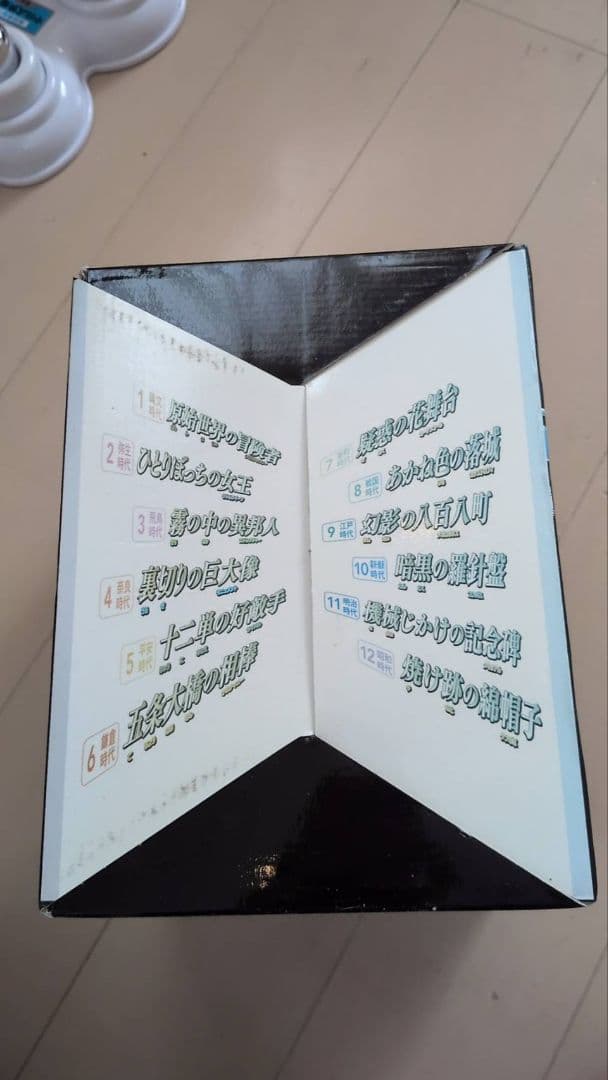 1 縄文時代 原始世界の冒険者
2 弥生時代 ひとりぼっちの女王
3 飛鳥時代 霧の中の異邦人
4 奈良時代 裏切りの巨大像
5 平安時代 十二単の好敵手
6 鎌倉時代 五条大橋の相棒
7 時代 疑惑の花舞台
8 戦国時代 あかね色の落城
9 江戸時代 幻影の八百八町
10 時代 暗黒の羅針盤
11 明治時代 機械じかけの記念碑
12 昭和時代 焼け跡の綿帽子